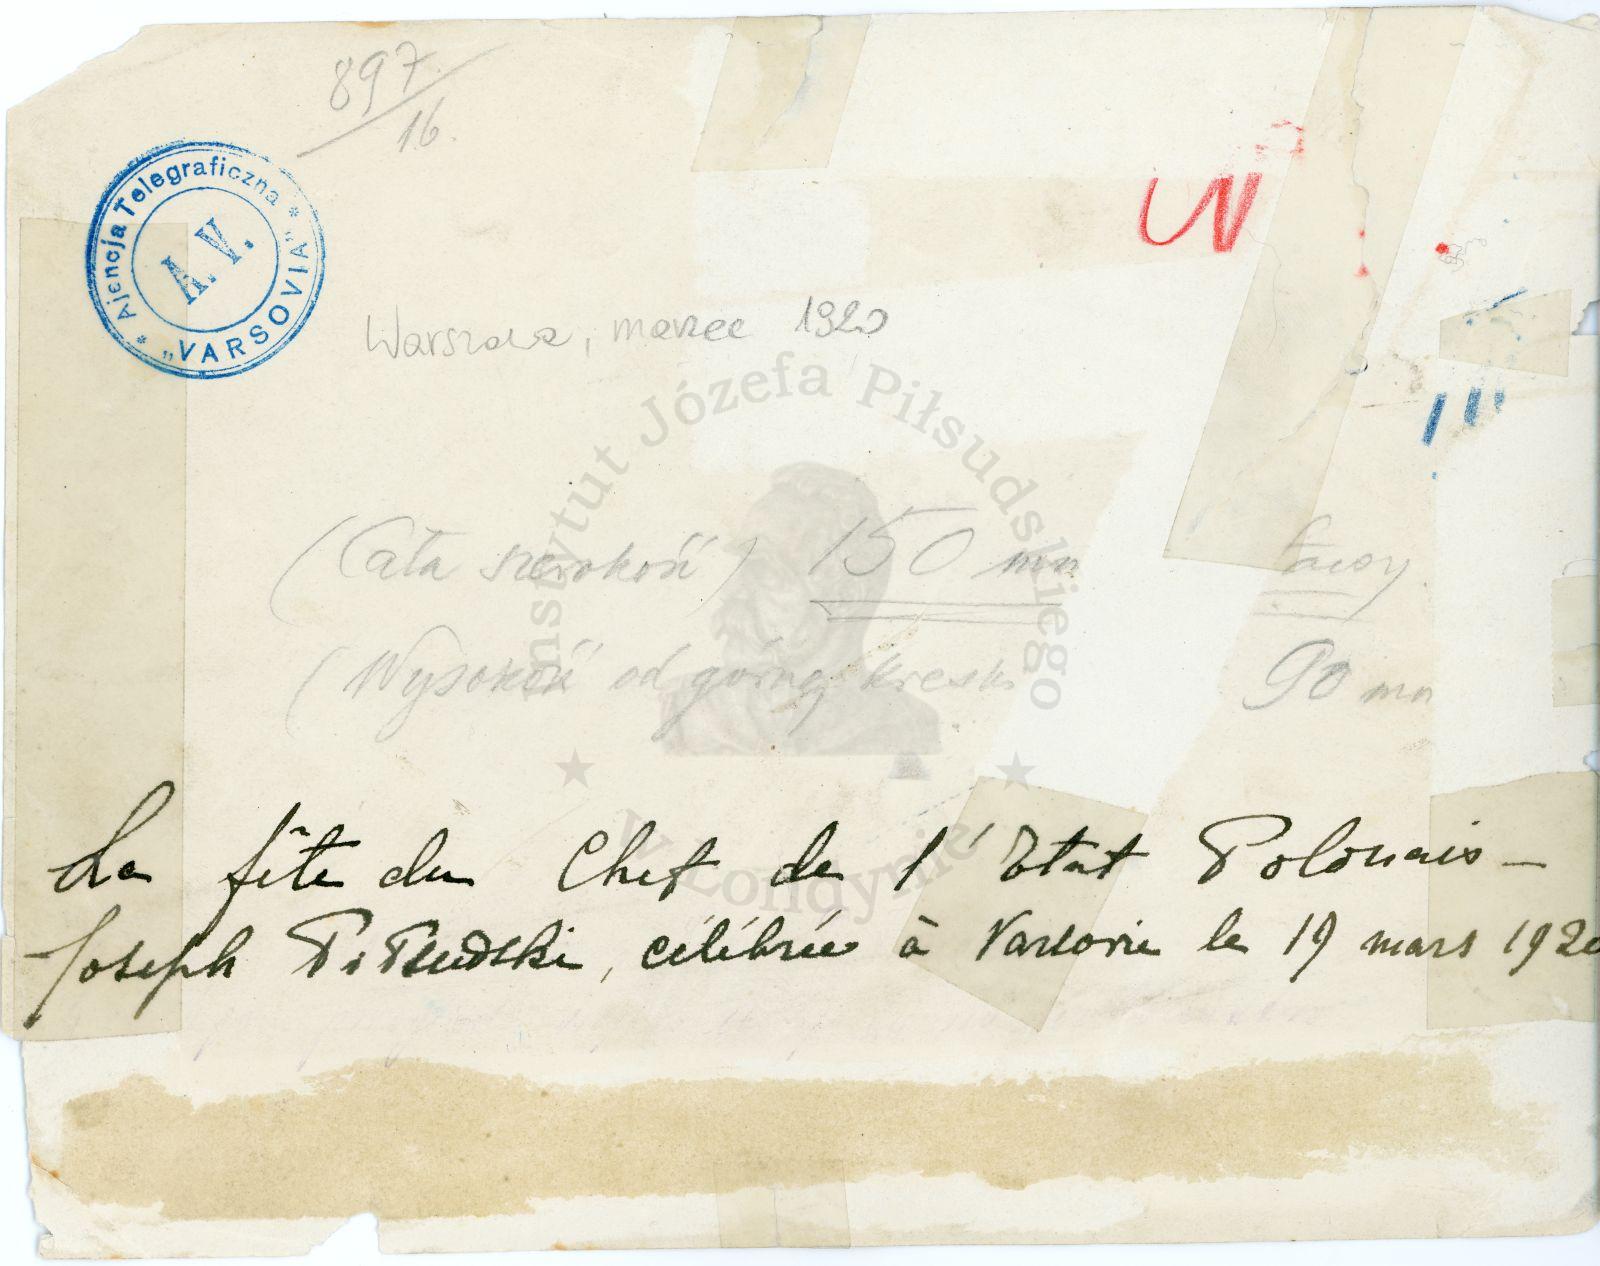 897.
16.
Ajencja Telegraficzna
A. V.
"VARSOVIA"
Warszawa, marzec 1920
Instytut Józefa Piłsudskiego
w Londynie
(Cała szerokość) 150 mm
(Wysokość od górnej kreski 90 mm
La fête du Chef de l'Etat Polonais –
Joseph Piłsudski, célébrée à Varsovie le 19 mars 1920